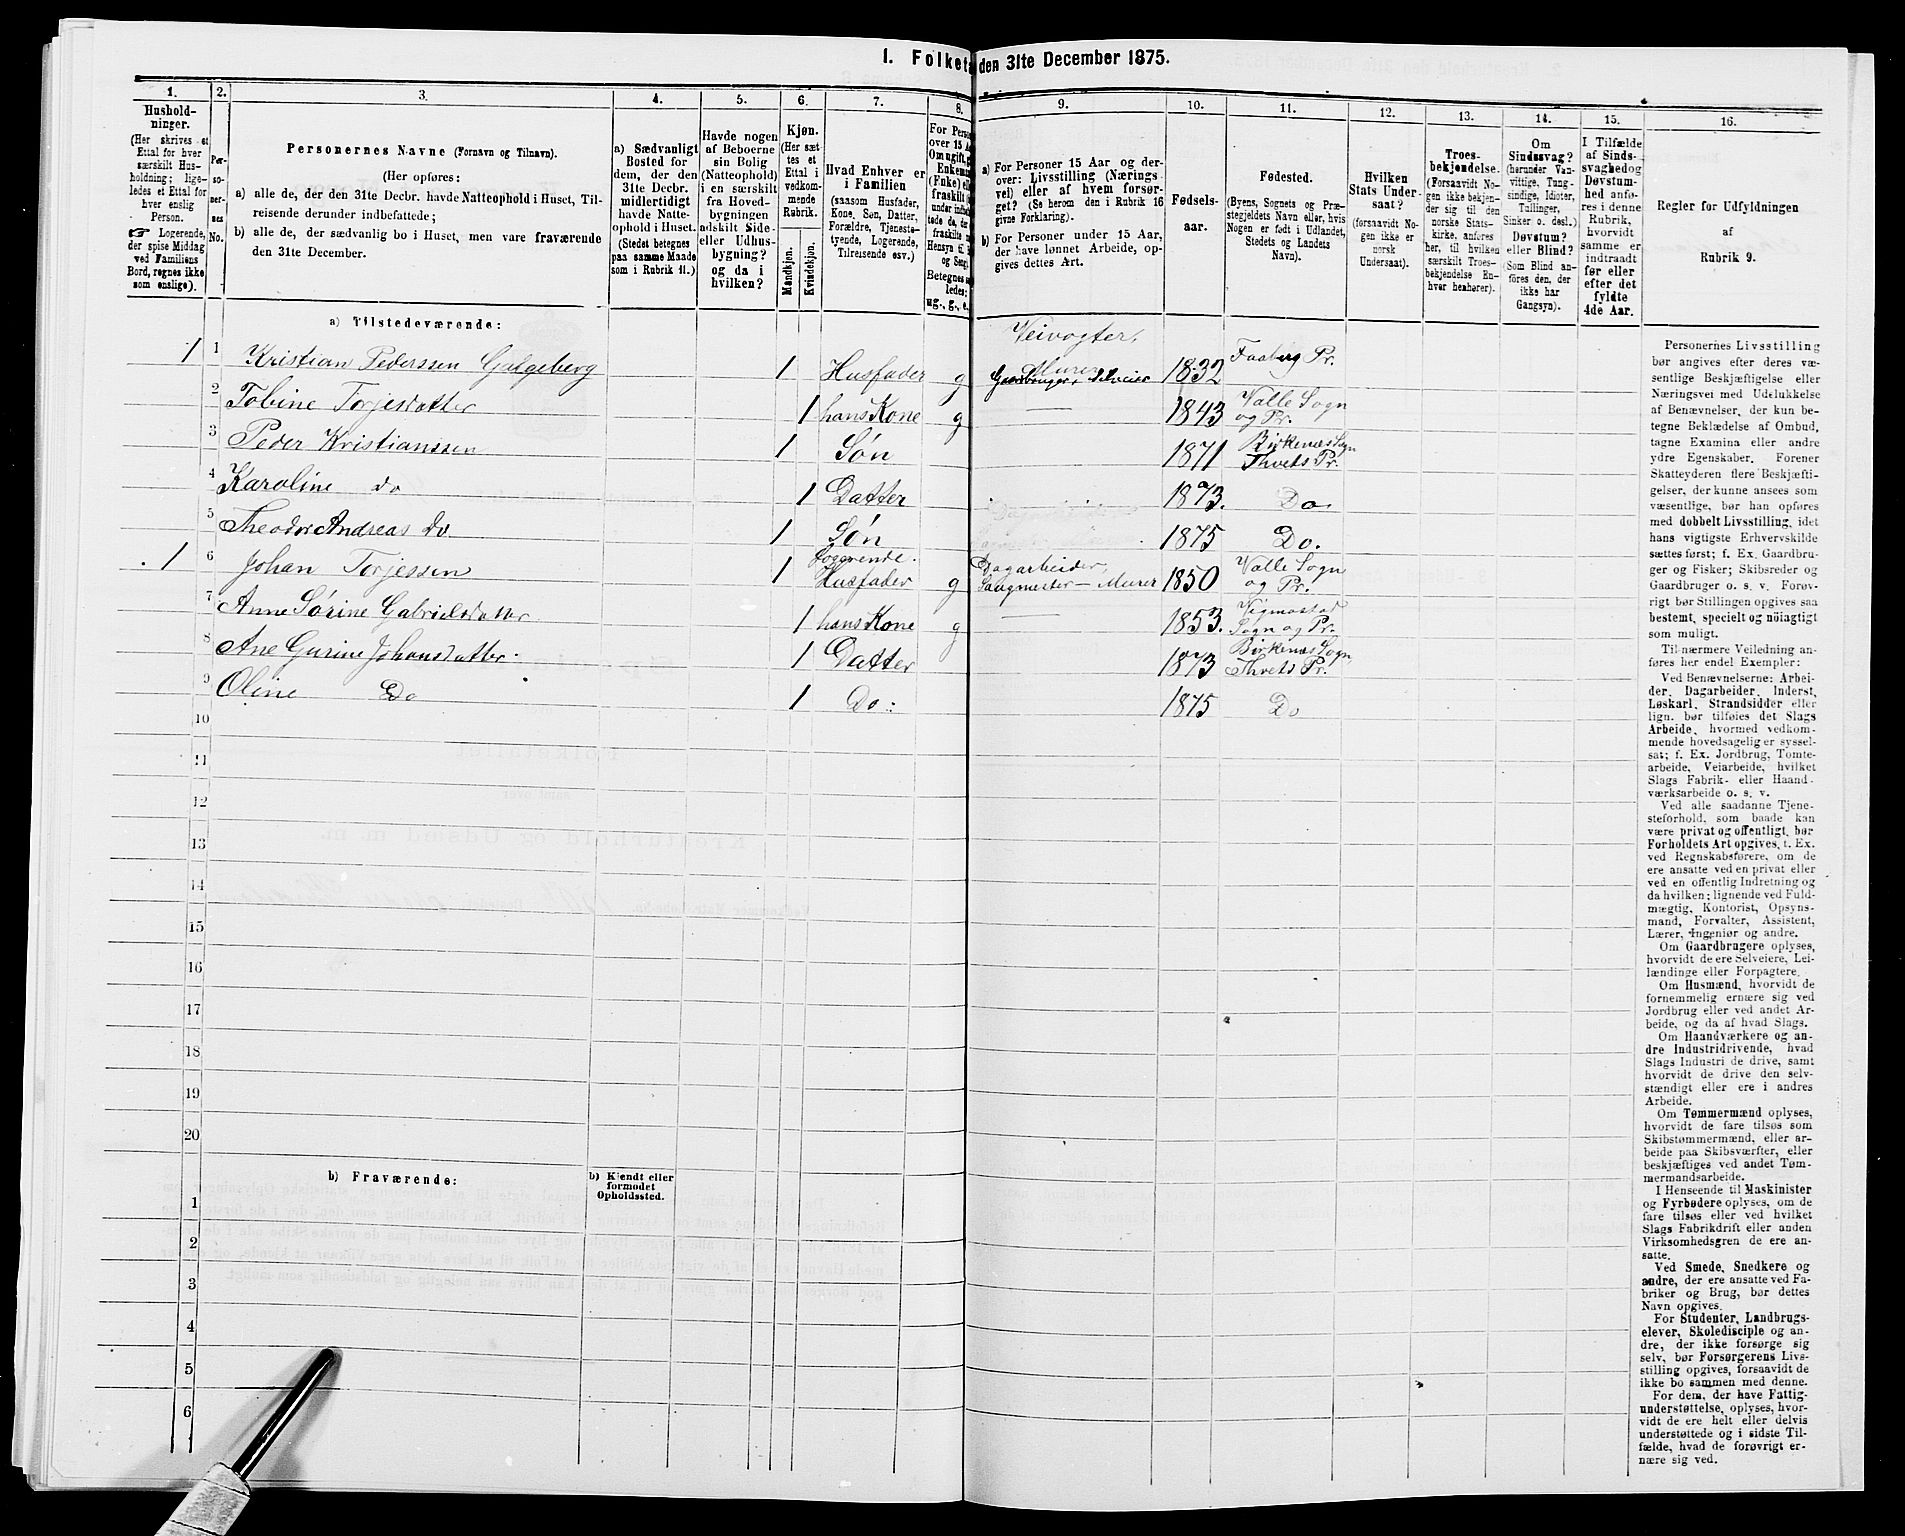 I. Folketæ
den 31te December 1875.
1.
Hushold-
ninger.
(Her skrives et
Ettal for hver
særskilt Hus-
holdning; lige-
ledes et Ettal for
hver enslig
Person.
Logerende,
der spise Middag
ved Familiens
Bord, regnes ikke
som enslige).
2.
Per-
so-
ner-
nes
No.
3.
Personernes Navne (Fornavn og Tilnavn).
(Her opføres:
a) alle de, der den 31te Decbr. havde Natteophold i Huset, Til-
reisende derunder indbefattede;
b) alle de, der sædvanlig bo i Huset, men vare fraværende
den 31te December.
4.
a) Sædvanligt
Bosted for
dem, der den
31te Decbr.
midlertidigt
havde Natte-
ophold i Huset.
(Stedet betegnes
paa samme Maade
som i Rubrik 11.)
5.
Havde nogen
af Beboerne
sin Bolig
(Natteophold)
i en særskilt
fra Hoved-
bygningen
adskilt Side-
eller Udhus-
bygning?
og da i
hvilken?
6.
Kjøn.
(Her sæt-
tes et
Ettal i
vedkom-
mende
Rubrik.
Mandkjøn.
Kvindekjøn.
7.
Hvad Enhver er
i Familien
(saasom Husfader,
Kone, Søn, Datter,
Forældre, Tjeneste-
tyende, Logerende,
Tilreisende osv.)
8.
For Perso
over 15 Aa
Om ugift, g
Enkem
(Enke) el
fraskilt
under indbe
tede de, de
fraskilte m
Hensyn til
og Seng.
Betegnes s
ledes:
ug., g., e.
9.
a) For Personer 15 Aar og der-
over: Livsstilling (Nærings-
vei) eller af hvem forsør-
get? (Se herom den i Rubrik 16
givne Forklaring).
b) For Personer under 15 Aar,
der have lønnet Arbeide, op-
gives dettes Art.
10.
Fødsels-
aar.
11.
Fødested.
(Byens, Sognets og Præ-
stegjeldets Navn eller, hvis
Nogen er født i Udlandet,
Stedets og Landets
Navn).
12.
Hvilken
Stats Under-
saat?
(forsaavidt No-
gen ikke er
norsk
Undersaat).
13.
Troes-
bekjendelse.
(Forsaavidt No-
gen ikke bekjen-
der sig til den
norske Stats-
kirke, anføres
her, til hvilken
særskilt Troes-
bekjendelse En-
hver henhører).
14.
Om
Sindssvag?
(herunder Van-
vittige, Tung-
sindige, Idioter,
Tullinger,
Sinker o. desl.)
Døvstum?
eller Blind?
(Som Blind an-
føres den, der
ikke har
Gangsyn).
15.
I Tilfælde
af Sinds-
svaghed og
Døvstum-
hed anfø-
res i denne
Rubrik,
hvorvidt
samme er
indtraadt
før eller
efter det
fyldte
4de Aar.
16.
Regler for Udfyldningen
af
Rubrik 9.
a) Tilstedeværende:
1 1 Kristian Pederssen Galgeberg 1 Husfader g Veivogter, Murer Gaardbruger, Selveier 1832 Faaberg Pr.
2 Tobine Torjesdatter 1 hans Kone g — 1843 Valle Sogn og Pr.
3 Peder Kristianssen 1 Søn 1871 Birkenæs Sogn Thvets Pr.
4 Karoline do 1 Datter 1873. Do.
5 Theodor Andreas do. 1 Søn 1875 Do.
1 6 Johan Torjessen 1 Logerende. Husfader g Dagarbeider, Saugmester — Murer 1850 Valle Sogn og Pr.
7 Anne Sørine Gabrielsdatter 1 hans Kone g — 1853. Vigmostad Sogn og Pr.
8 Ane Gurine Johansdatter. 1 Datter 1873 Birkenæs Sogn, Thvets Pr.
9 Oline Do 1 Do: 1875 Do
10
11
12
13
14
15
16
17
18
19
20
b) Fraværende:
b) Kjendt eller
formodet
Opholdssted.
1
2
3
4
5
6
Personernes Livsstilling
bør angives efter deres væ-
sentlige Beskjæftigelse eller
Næringsvei med Udelukkelse
af Benævnelser, der kun be-
tegne Beklædelse af Ombud,
tagne Examina eller andre
ydre Egenskaber. Forener
Skatteyderen flere Beskjæfti-
gelser, der kunne ansees som
væsentlige, bør han opføres
med dobbelt Livsstilling, idet
hans vigtigste Erhvervskilde
sættes først; f. Ex. Gaardbru-
ger og Fisker; Skibsreder og
Gaardbruger o. s. v. Forøv-
rigt bør Stillingen opgives saa
bestemt, specielt og nöiagtigt
som muligt.
Til nærmere Veiledning an-
føres her endel Exempler:
Ved Benævnelserne: Arbei-
der, Dagarbeider, Inderst,
Løskarl, Strandsidder eller
lign. bør tilføies det Slags
Arbeide, hvormed vedkom-
mende hovedsagelig er syssel-
sat; f. Ex. Jordbrug, Tomte-
arbeide, Veiarbeide, hvilket
Slags Fabrik- eller Haand-
værksarbeide o. s. v.
Ved alle saadanne Tjene-
steforhold, som baade kan
være privat og offentligt, bør
Forholdets Art opgives, t. Ex.
ved Regnskabsførere, om de
ere ansatte ved en privat eller
ved en offentlig Indretning og
da hvilken; lignende ved Fuld-
mægtig, Kontorist, Opsyns-
mand, Forvalter, Assistent,
Lærer, Ingeniør og andre.
Om Gaardbrugere oplyses,
hvorvidt de ere Selveiere, Lei-
lændinge eller Forpagtere.
Om Husmænd, hvorvidt de
fornemmelig ernære sig ved
Jordbrug eller ved andet Ar-
beide, og da af hvad Slags.
Om Haandværkere og an-
dre Industridrivende, hvad
Slags Industri de drive, samt
hvorvidt de drive den selv-
stændigt eller ere i andres
Arbeide.
Om Tømmermænd oplyses,
hvorvidt de fare tilsøs som
Skibstømmermænd, eller ar-
beide paa Skibsværfter, eller
beskjæftiges ved andet Tøm-
mermandsarbeide.
I Henseende til Maskinister
og Fyrbødere oplyses, om de
fare tilsøs eller ved hvilket
Slags Fabrikdrift eller anden
Virksomhedsgren de ere an-
satte.
Ved Smede, Snedkere og
andre, der ere ansatte ved Fa-
briker og Brug, bør dettes
Navn opgives.
For Studenter, Landbrugs-
elever, Skoledisciple og an-
dre, der ikke forsørge sig
selv, bør Forsørgerens Livs-
stilling opgives, forsaavidt de
ikke bo sammen med denne.
For dem, der have Fattig-
understøttelse, oplyses, hvor-
vidt de ere helt eller delvis
understøttede og i sidste Til-
fælde, hvad de forøvrigt er-
nære sig ved.